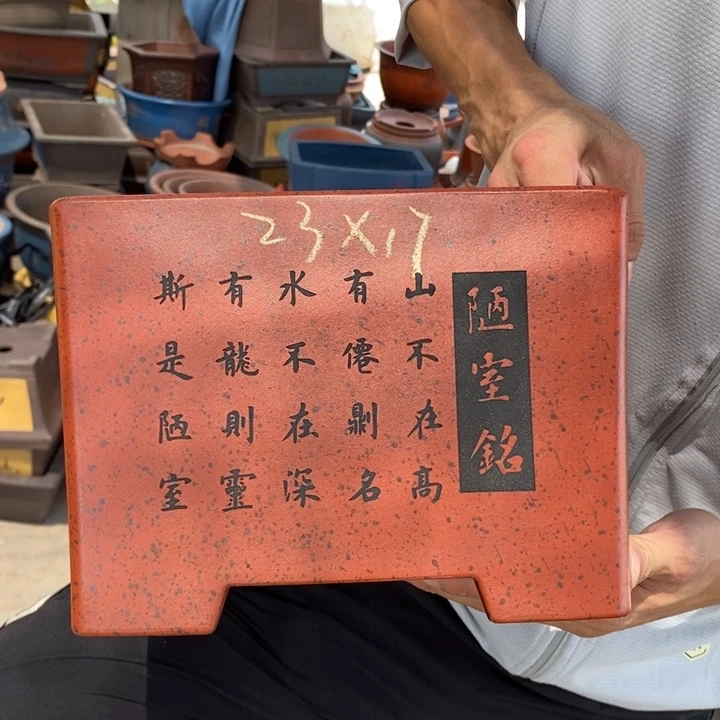 23×17
陋室銘
山不在高
有僊𠟭名
水不在深
有龍則靈
斯是陋室